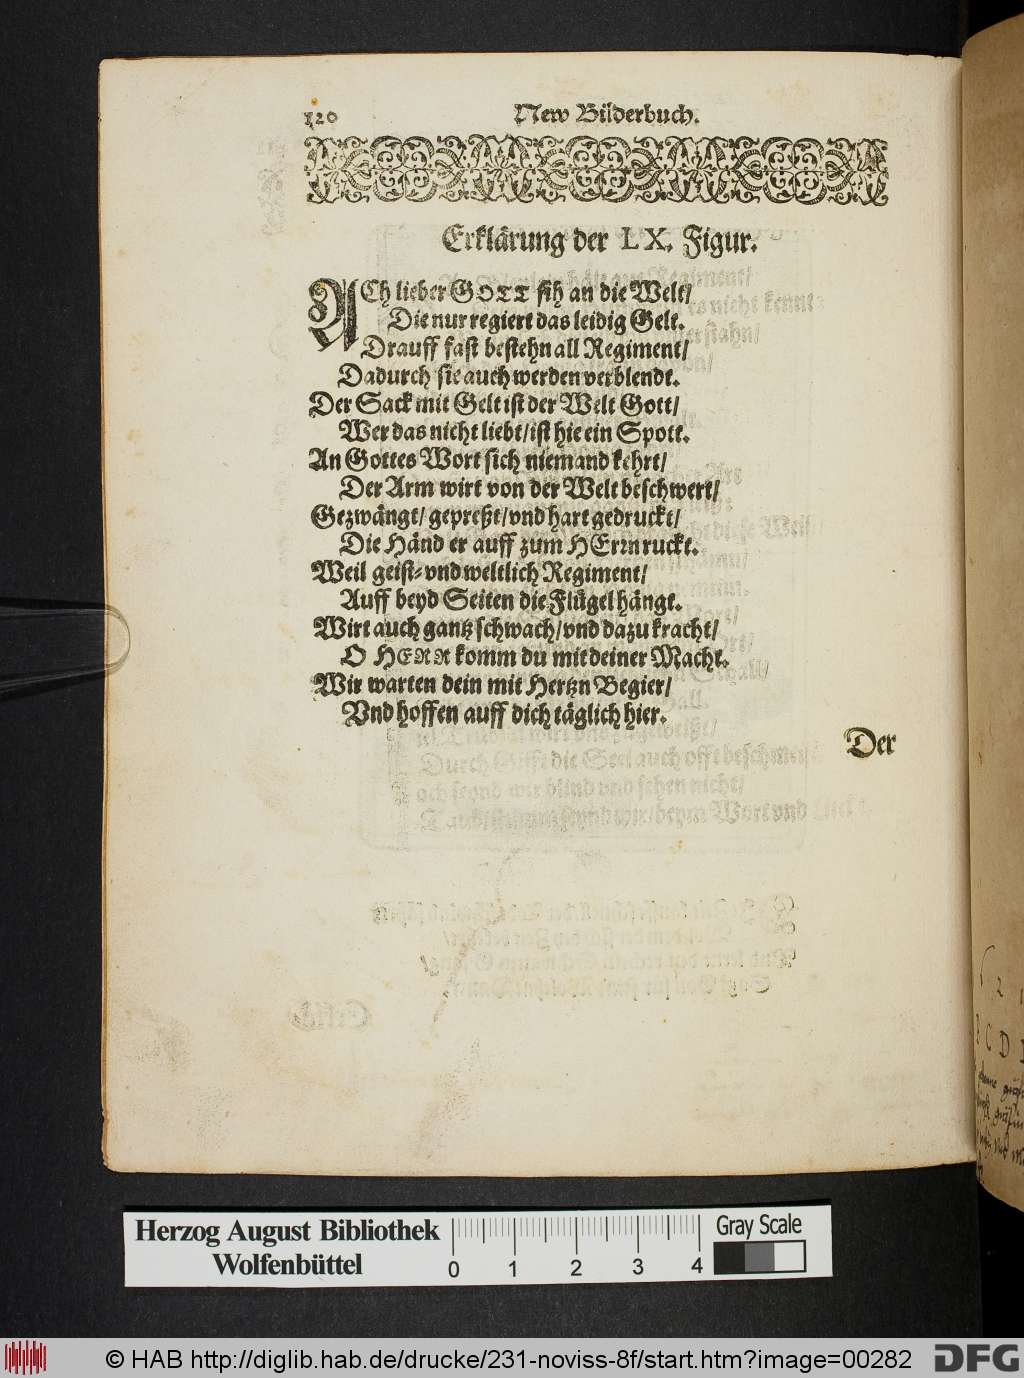 120 New Bilderbuch.
Erklärung der LX. Figur.
ACh lieber GOTT sih an die Welt/
Die nur regiert das leidig Gelt.
Drauff fast bestehn all Regiment/
Dadurch sie auch werden verblendt.
Der Sack mit Gelt ist der Welt Gott/
Wer das nicht liebt/ ist hie ein Spott.
An Gottes Wort sich niemand kehrt/
Der Arm wirt von der Welt beschwert/
Gezwängt/ gepreßt/ vnd hart gedruckt/
Die Händ er auff zum HErrn ruckt.
Weil geist- vnd weltlich Regiment/
Auff beyd Seiten die Flügel hängt.
Wirt auch gantz schwach/ vnd dazu kracht/
O HERR komm du mit deiner Macht.
Wir warten dein mit Hertzn Begier/
Vnd hoffen auff dich täglich hier.
Der
Herzog August Bibliothek
Wolfenbüttel
0 1 2 3 4
Gray Scale
© HAB http://diglib.hab.de/drucke/231-noviss-8f/start.htm?image=00282
DFG